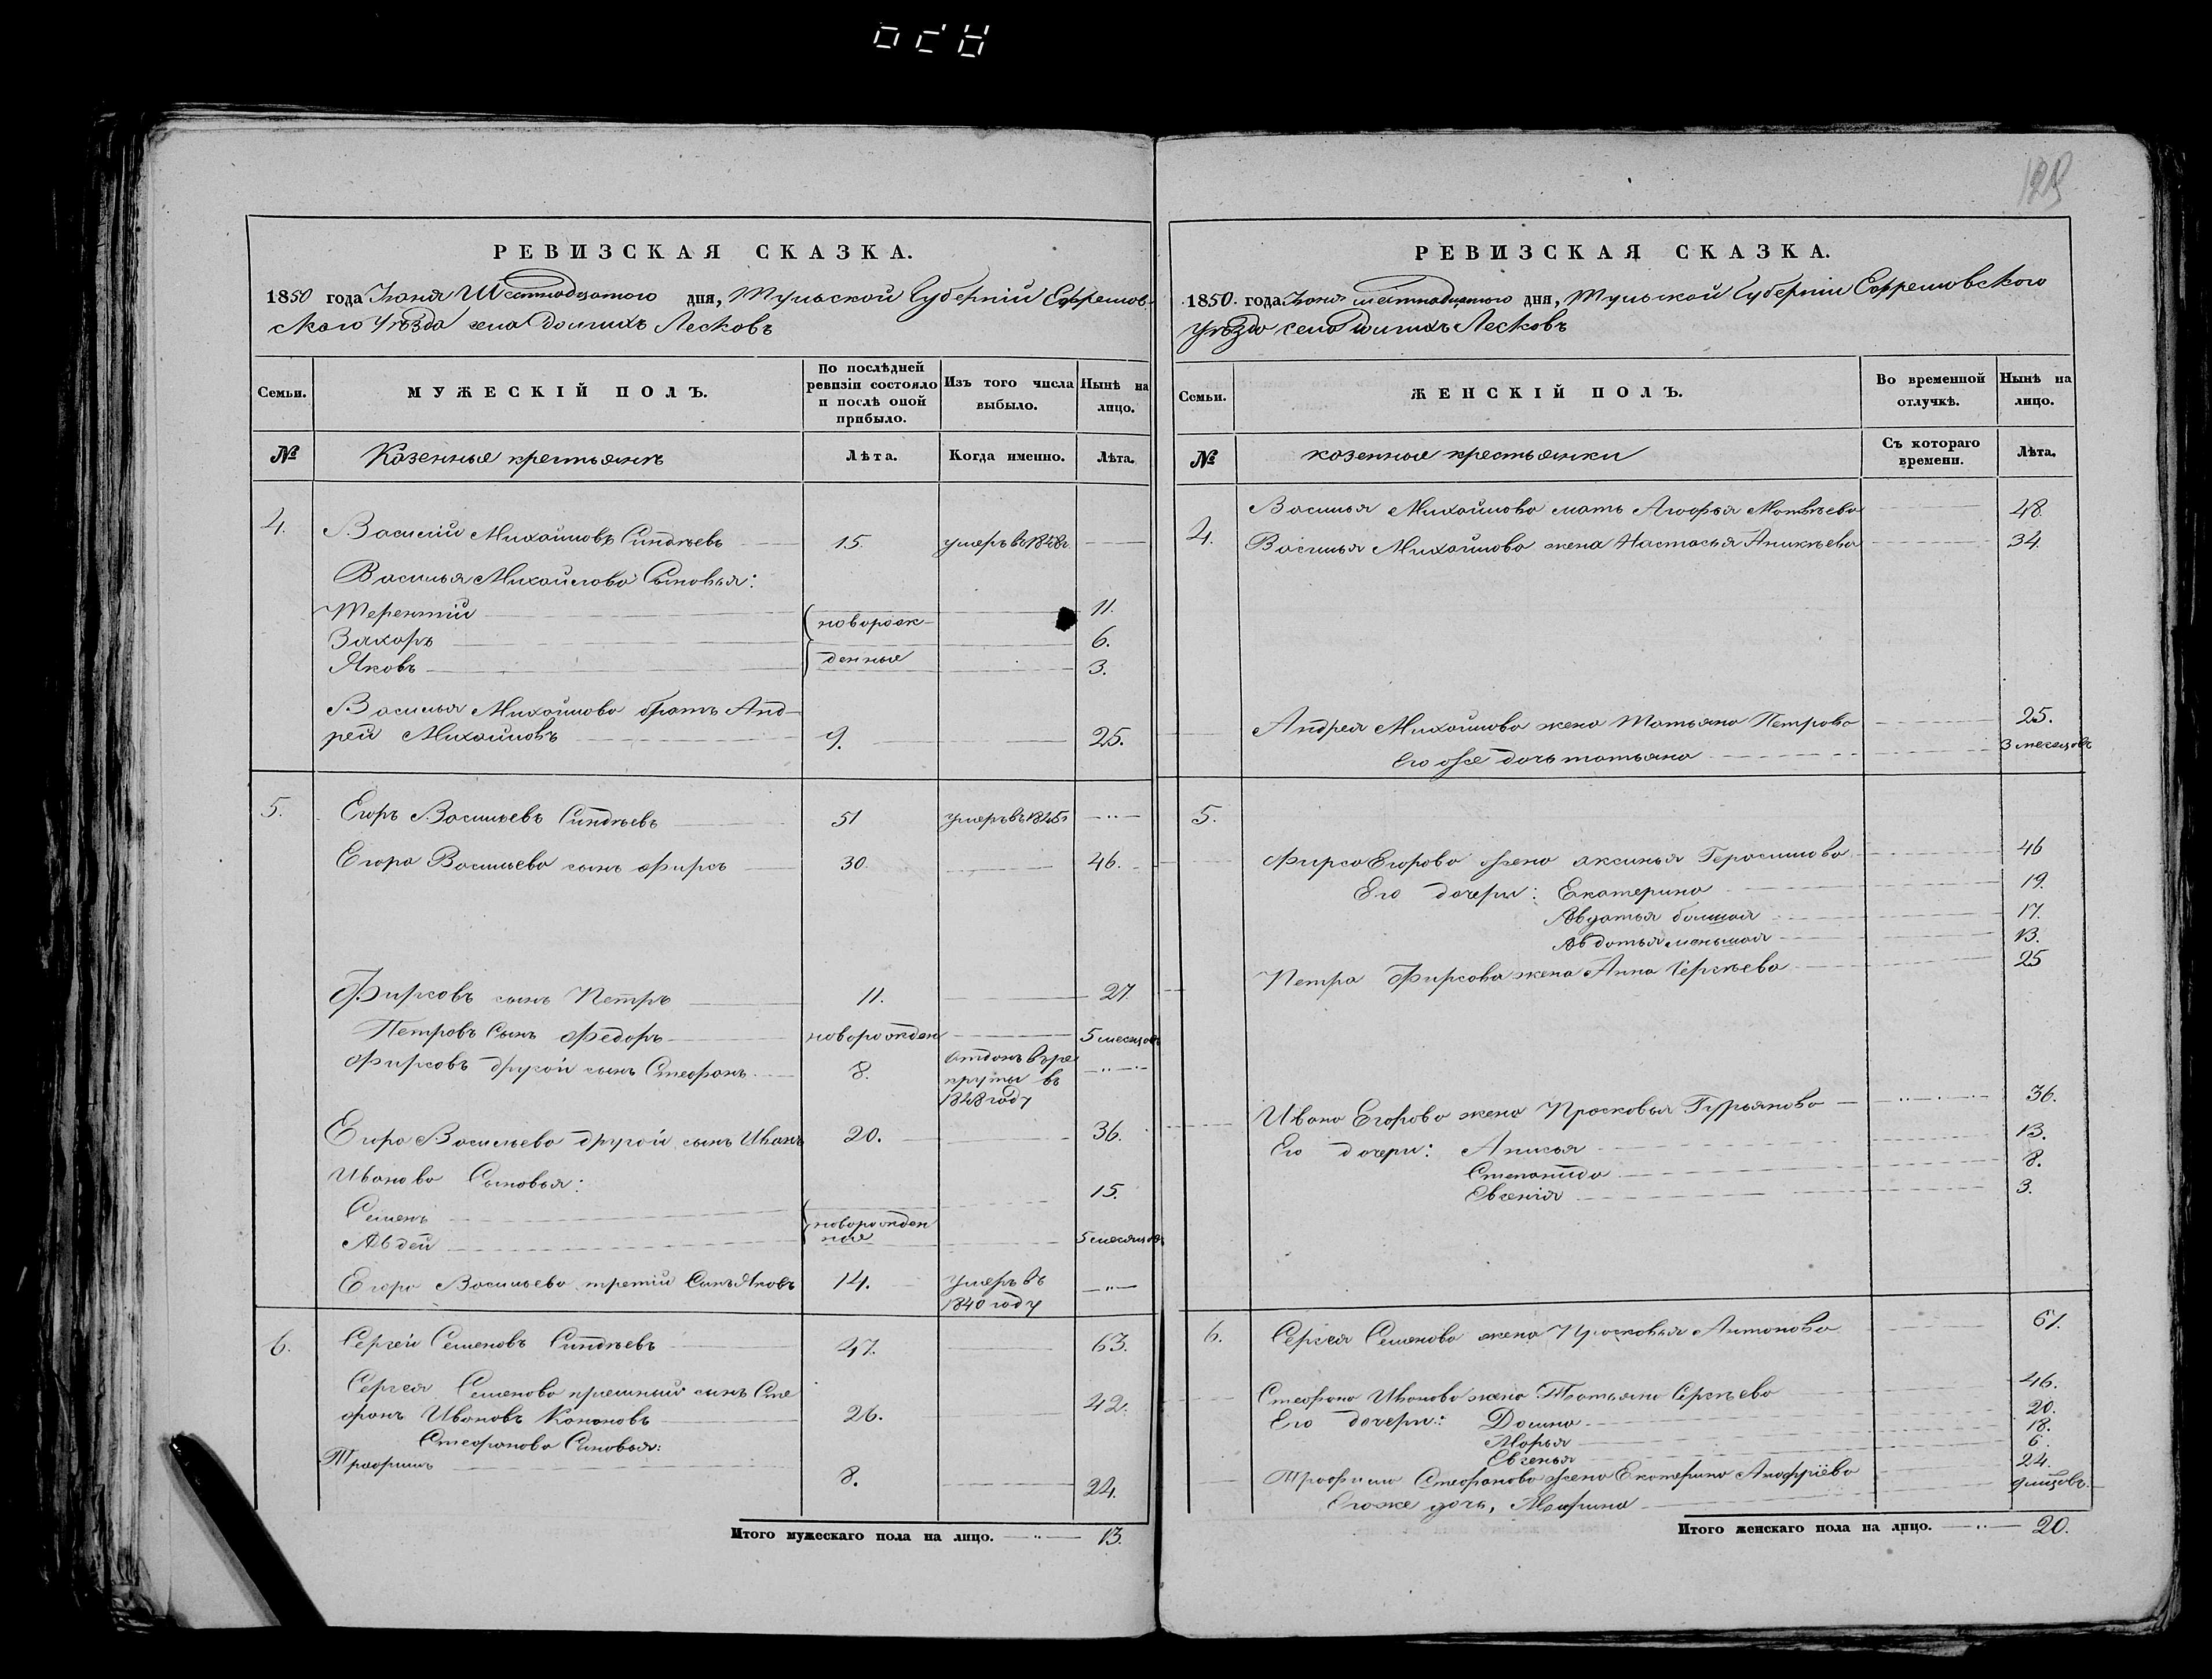 128
РЕВИЗСКАЯ СКАЗКА.
1850 года Іюня Шестнадцатого дня, Тульской Губерніи Ефремов-
скаго Уѣзда села Долгихъ Лесковъ
Семьи.
МУЖЕСКІЙ ПОЛЪ.
По послѣдней ревизіи состояло и послѣ оной прибыло.
Изъ того числа выбыло.
Нынѣ на лицо.
№ Казенные крестьянъ Лѣта. Когда именно. Лѣта.
4. Василий Михайловъ Синдѣевъ 15. умеръ въ 1848г.
Василья Михайлова Сыновья:
Терентий новорож- 11.
Захаръ 6.
Яковъ денные 3.
Василья Михайлова братъ Анд-
рей Михайловъ 9. 25.
5. Егоръ Васильевъ Синдѣевъ 51 умеръ въ 1845г
Егора Васильева сынъ Фирсъ 30. 46.
Фирсовъ сынъ Петръ 11. 27.
Петровъ Сынъ Федоръ новорожден 5 месяцовъ
Фирсовъ другой сынъ Стефанъ 8. отданъ въ ре
круты въ
1848 году
Егора Васильева другой сынъ Иванъ 20. 36.
Иванова Сыновья:
Семенъ новорожден 15.
Авдей ные 5 месяцовъ
Егора Васильева третий Сынъ Яковъ 14. умеръ въ
1840 году
6. Сергей Семеновъ Синдѣевъ 47. 63.
Сергея Семенова приемный сынъ Сте
фанъ Ивановъ Кононовъ 26. 42.
Стефанова Сыновья:
Трафимъ 8. 24.
Итого мужескаго пола на лицо. 13.
РЕВИЗСКАЯ СКАЗКА.
1850. года Іюня шестнадцатого дня, Тульской Губерніи Ефремовскаго
Уѣзда села Долгихъ Лесковъ
Семьи.
ЖЕНСКІЙ ПОЛЪ.
Во временной отлучкѣ.
Нынѣ на лицо.
№ казенные крестьянки Съ котораго времени. Лѣта.
Василья Михайлова мать Агафья Матвѣева 48.
4. Василья Михайлова жена Настасья Аникѣева 34.
Андрея Михайлова жена Татьяна Петрова 25.
Его же дочь татьяна 3 месяцовъ
5.
Фирса Егорова жена аксинья Герасимова 46
Его дочери: Екатерина 19.
Авдатья большая 17.
Авдотья меньшая 13.
Петра Фирсова жена Анна Сергѣева 25
Ивана Егорова жена Прасковья Гурьянова 36.
Его дочери: Анисья 13.
Степанида 8.
Евгения 3.
6. Сергея Семенова жена Прасковья Антонова 61.
Стефана Иванова жена Татьяна Сергѣева 46.
Его дочери: Домна 20.
Марья 18.
Евгенья 6.
Трафима Стефанова жена Екатерина 24.
Егоже дочь, Марина
Итого женскаго пола на лицо. 20.